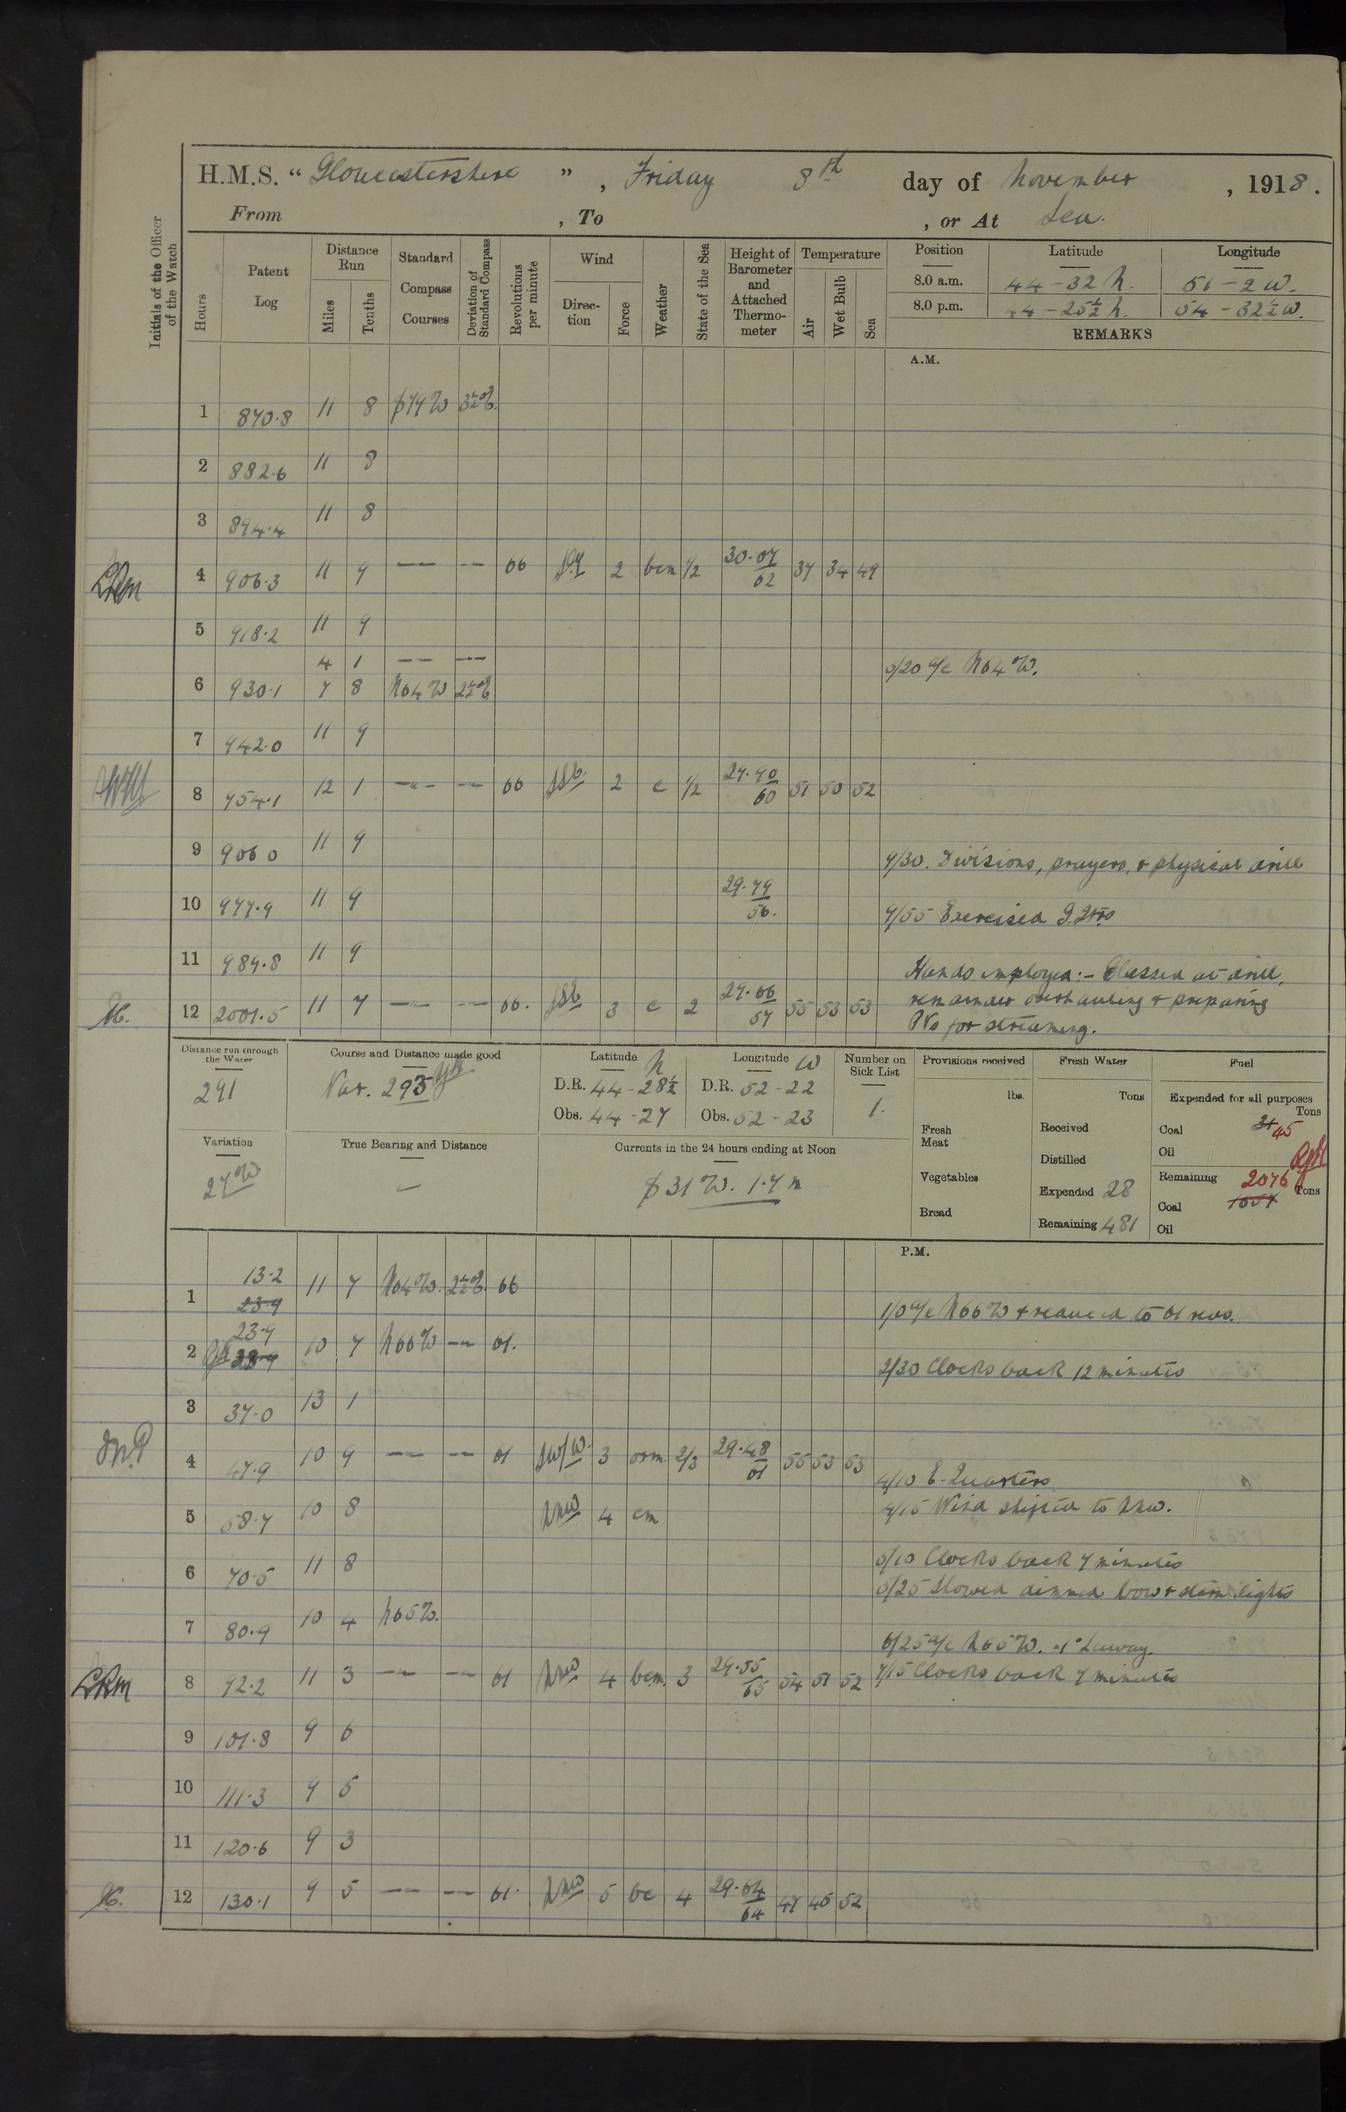 H.M.S. "Gloucestershire", Friday 8th day of November, 1918.
From , To , or At Sea.
Initials of the Officer of the Watch
Hours
Patent Log
Distance Run
Miles
Tenths
Standard Compass Courses
Deviation of Standard Compass
Revolutions per minute
Wind
Direction
Force
Weather
State of the Sea
Height of Barometer and Attached Thermometer
Temperature
Air
Wet Bulb
Sea
Position Latitude Longitude
8.0 a.m. 44-32 N. 51-2 W.
8.0 p.m. 44-25½ N. 54-32½ W.
REMARKS
A.M.
1 870.8 11 8 S79W 3½E.
2 882.6 11 8
3 894.4 11 8
LRM 4 906.3 11 9 — — 66 2 bcm 1/2 30.07/62 37 34 49
5 918.2 11 9
4 1 — —
5/20 a/c N64W.
6 930.1 7 8 N64W 2½E
7 942.0 11 9
8 954.1 12 1 — — 66 SSE. 2 c 1/2 29.90/60 51 50 52
9 966 0 11 9
9/30. Divisions, prayers, & physical drill
10 977.9 11 9 29.79/56.
9/55 Exercised G. Qtrs
11 989.8 11 9
Hands employed:- Classed at drill,
12 2001.5 11 7 — — 66. SSE 3 c 2 29.66/57 55 53 53
remainder overhauling & preparing
PVs for streaming.
Distance run through the Water
291
Course and Distance made good
Var. 293
Latitude N
D.R. 44-28½
Obs. 44-27
Longitude W
D.R. 52-22
Obs. 52-23
Number on Sick List
1.
Provisions received
lbs.
Fresh Meat
Vegetables
Bread
Fresh Water
Tons
Received
Distilled
Expended 28
Remaining 481
Fuel
Expended for all purposes
Tons
Coal 45
Oil
Remaining 2076 Tons
Coal
Oil
Variation
27W
True Bearing and Distance
—
Currents in the 24 hours ending at Noon
S 31 W. 1.7 m
P.M.
1 13.2 23.9 11 7 N64W. 2½E. 66
1/0 a/c N66W & reduced to 61 revs.
2 23.9 10 7 N66W — 61.
2/30 Clocks back 12 minutes
3 37.0 13 1
4 47.9 10 9 — — 61 SW/W. 3 orm 2/3 29.48/61 55 53 53
4/10 E. Quarters
5 58.7 10 8 NNW 4 cm
4/15 Wind shifted to NNW.
5/10 Clocks back 7 minutes
6 70.5 11 8
5/25 Showed dimmed bow & stern lights
7 80.9 10 4 N65W.
6/25 a/c N65W. -1° Leeway.
LRM 8 92.2 11 3 — — 61 NNW 4 bcm. 3 29.55/65 54 51 52
7/15 Clocks back 7 minutes
9 101.8 9 6
10 111.3 9 5
11 120.6 9 3
12 130.1 9 5 — — 61. NNW 5 bc 4 29.64/64 47 45 52